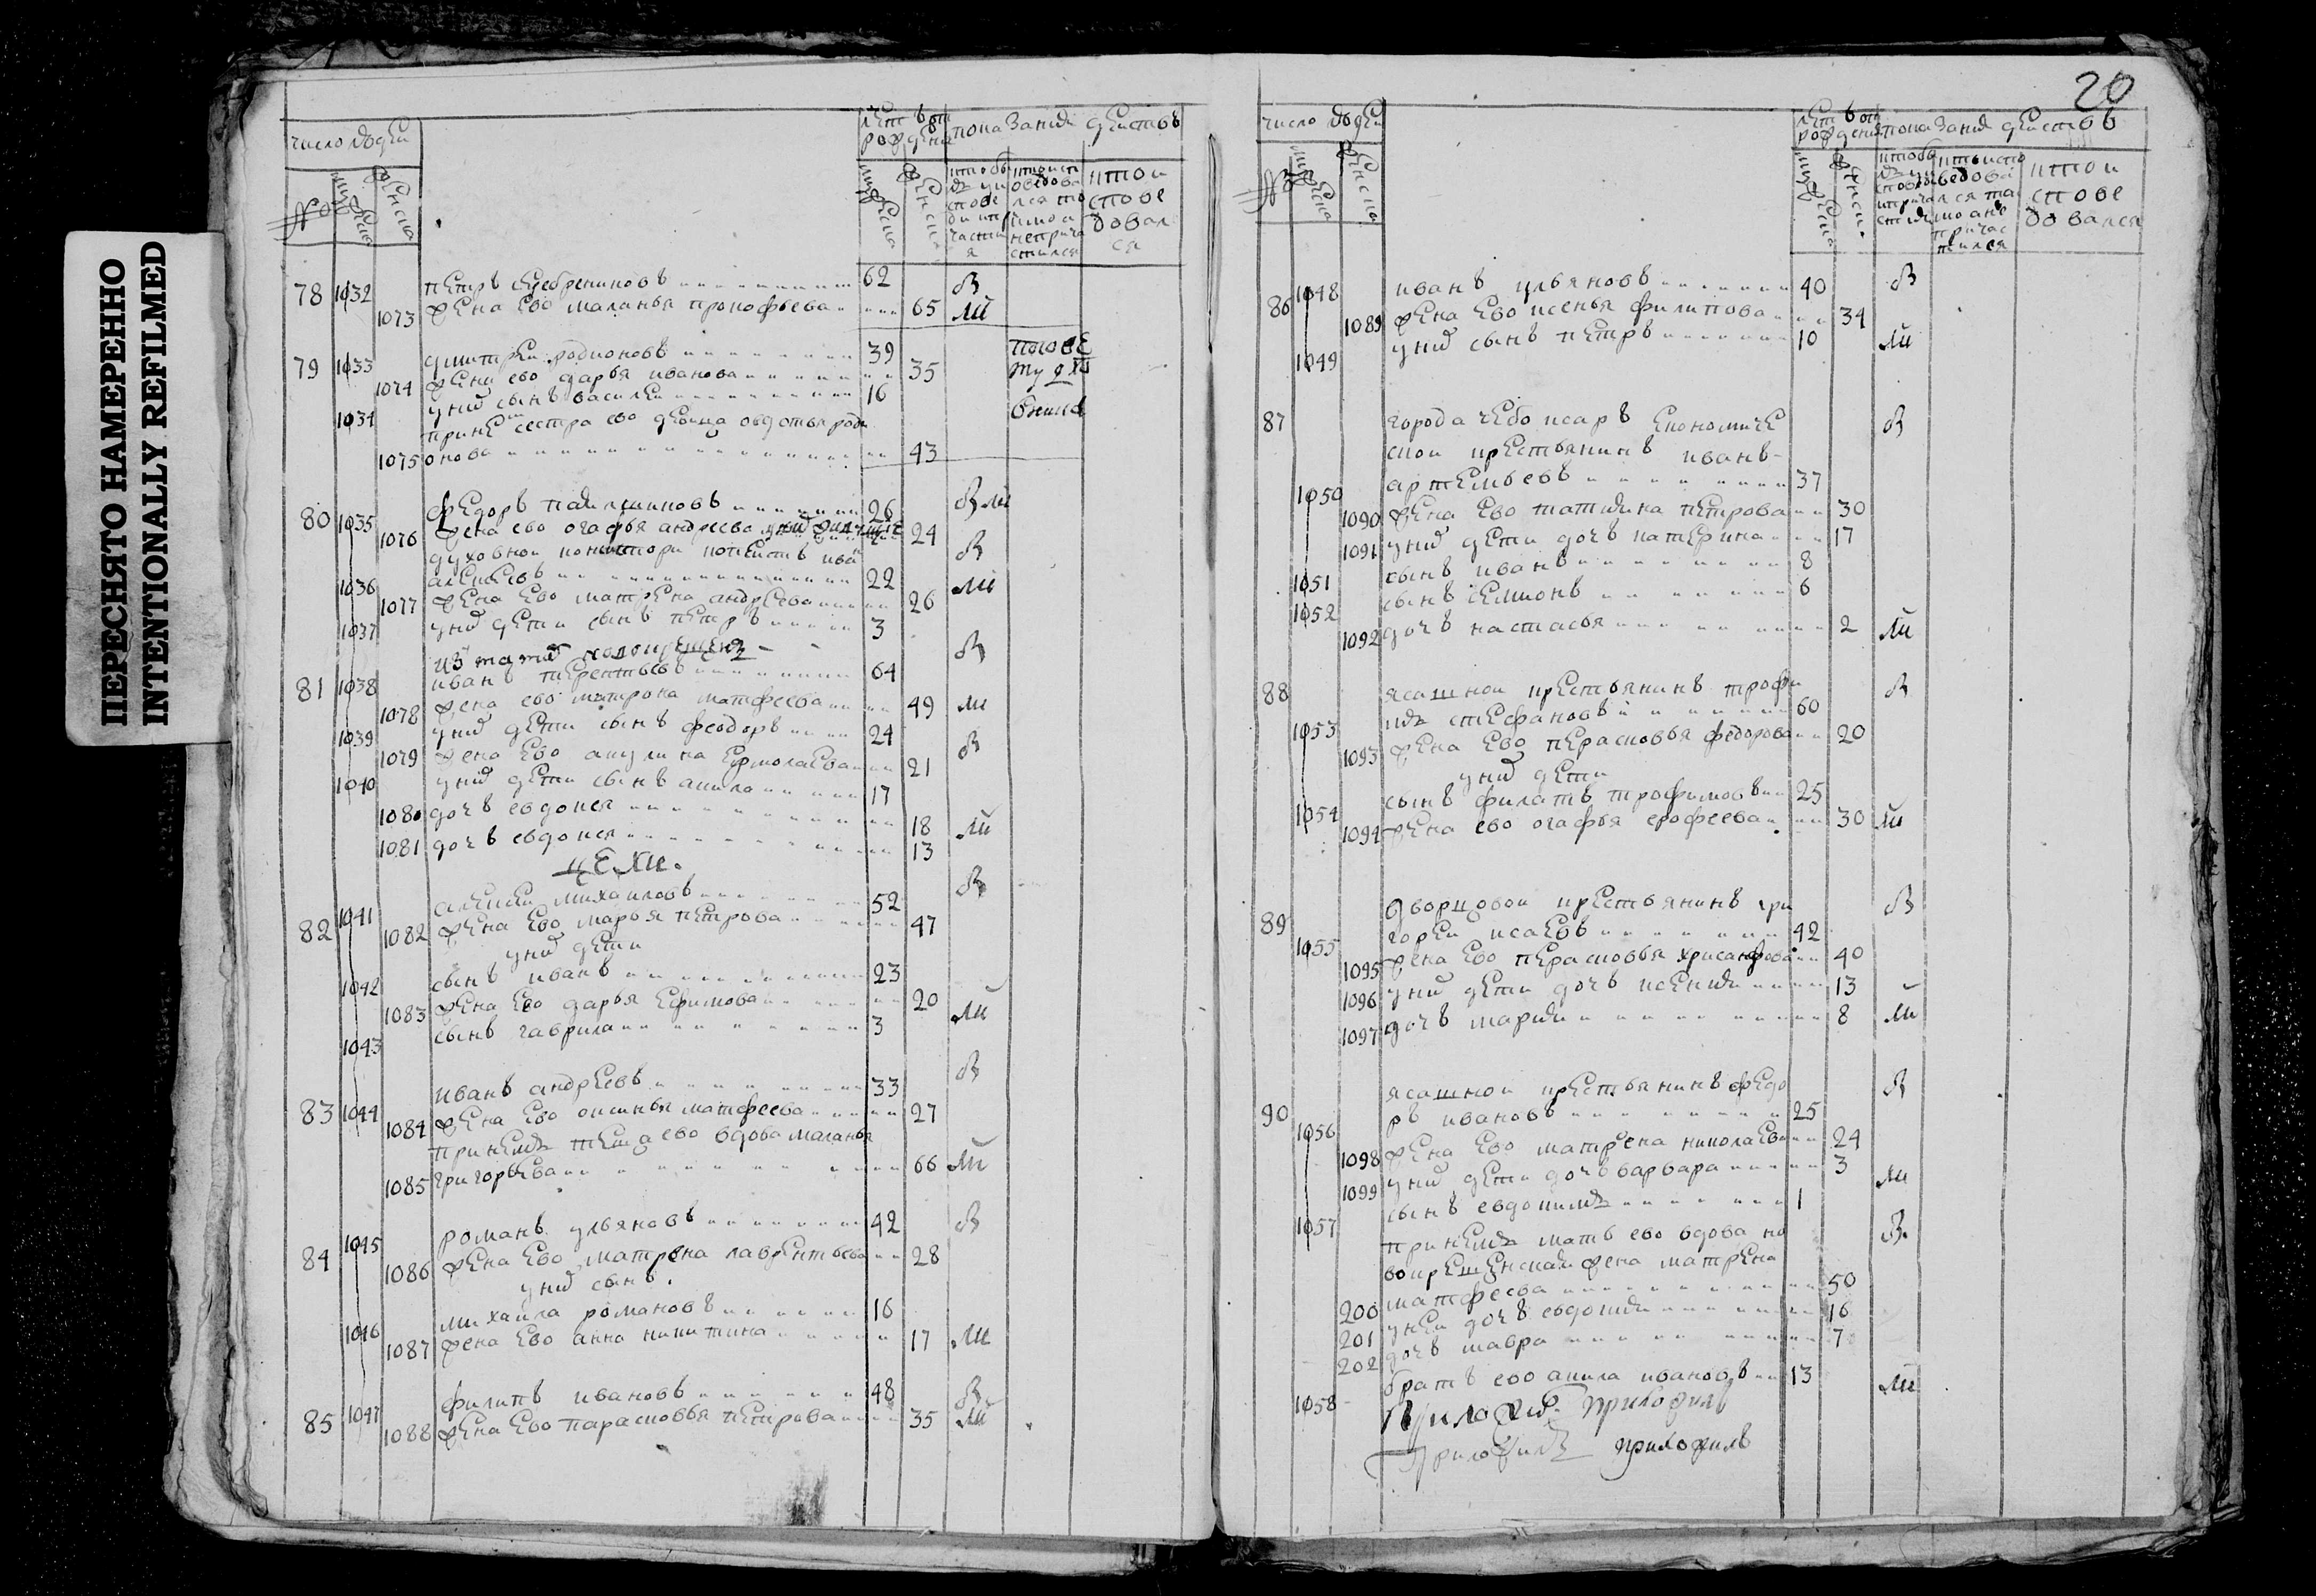 ПЕРЕСНЯТО НАМЕРЕННО
INTENTIONALLY REFILMED
число людеи
летъ от рождения
показания деиствъ
№
мужеска
женска
мужеска
женска
78 1032 петръ серебрениковъ 62 В
1073 жена ево маланья прокофьева 65 ли
79 1033 дмитреи родионовъ 39
1074 жена ево дарья иванова 35
1034 у них сынъ василеи 16
при нем сестра ево девица овдотья роди
1075 онова 43
80 1035 федоръ 26 В ли
1076 жена ево огафья андреева 24
духовнои консистори копеистъ ива
1036 алексеевъ 22 В
1077 жена ево матрена андреева 26 ли
1037 у них дети сынъ петръ 3
из татар новокрещенъ
81 1038 иванъ терентьевъ 64 В
1078 жена ево матрона матфеева 49 ли
1039 у них дети сынъ феодоръ 24
1079 жена ево акулина ермолаева 21 В
1040 у них дети сынъ акила 17
1080 дочь евдокея 18
1081 дочь евдокея 13 ли
цехи.
82 1041 алексеи михаиловъ 52 В
1082 жена ево марья петрова 47
у них дети
1042 сынъ иванъ 23
1083 жена ево дарья ефимова 20
1043 сынъ гаврила 3 ли
83 1044 иванъ андреевъ 33 В
1084 жена ево оксинья матфеева 27
при немъ теща ево вдова маланья
1085 григорьева 66 ли
84 1045 романъ ульяновъ 42 В
1086 жена ево матрена лаврентьева 28
у них сынъ.
1046 михаила романовъ 16
1087 жена ево анна никитина 17 ли
85 1047 филипъ ивановъ 48 В
1088 жена ево парасковья петрова 35 ли
20
число людеи
летъ от рождения
показания деиствъ
№
мужеска
женска
мужеска
женска
86 1048 иванъ ульяновъ 40 В
1089 жена ево ксенья филипова 34
1049 у них сынъ петръ 10 ли
87 города чебоксаръ економиче В
скои крестьянинъ иванъ
1050 артемьевъ 37
1090 жена ево татияна петрова 30
1091 у них дети дочь катерина 17
1051 сынъ иванъ 8
1052 сынъ семионъ 6
1092 дочь настасья 2 ли
88 ясашнои крестьянинъ трофи В
1053 мъ стефановъ 60
1093 жена ево перасковья федорова 20
у них дети
1054 сынъ филатъ трофимовъ 25
1094 жена ево огафья ерофеева 30 ли
89 дворцовои крестьянинъ гри В
1055 гореи исаевъ 42
1095 жена ево перасковья хрисанфова 40
1096 у них дети дочь ксения 13
1097 дочь мария 8 ли
90 ясашнои крестьянинъ федо В
1056 ръ ивановъ 25
1098 жена ево матрена николаева 24
1099 у них дети дочь варвара 3
1057 сынъ евдокимъ 1 ли
при немъ мать ево вдова но В.
вокрещенская жена матрена
200 матфеева 50
201 у неи дочь евдокия 16
202 дочь мавра 7
1058 братъ ево акила ивановъ 13 ли